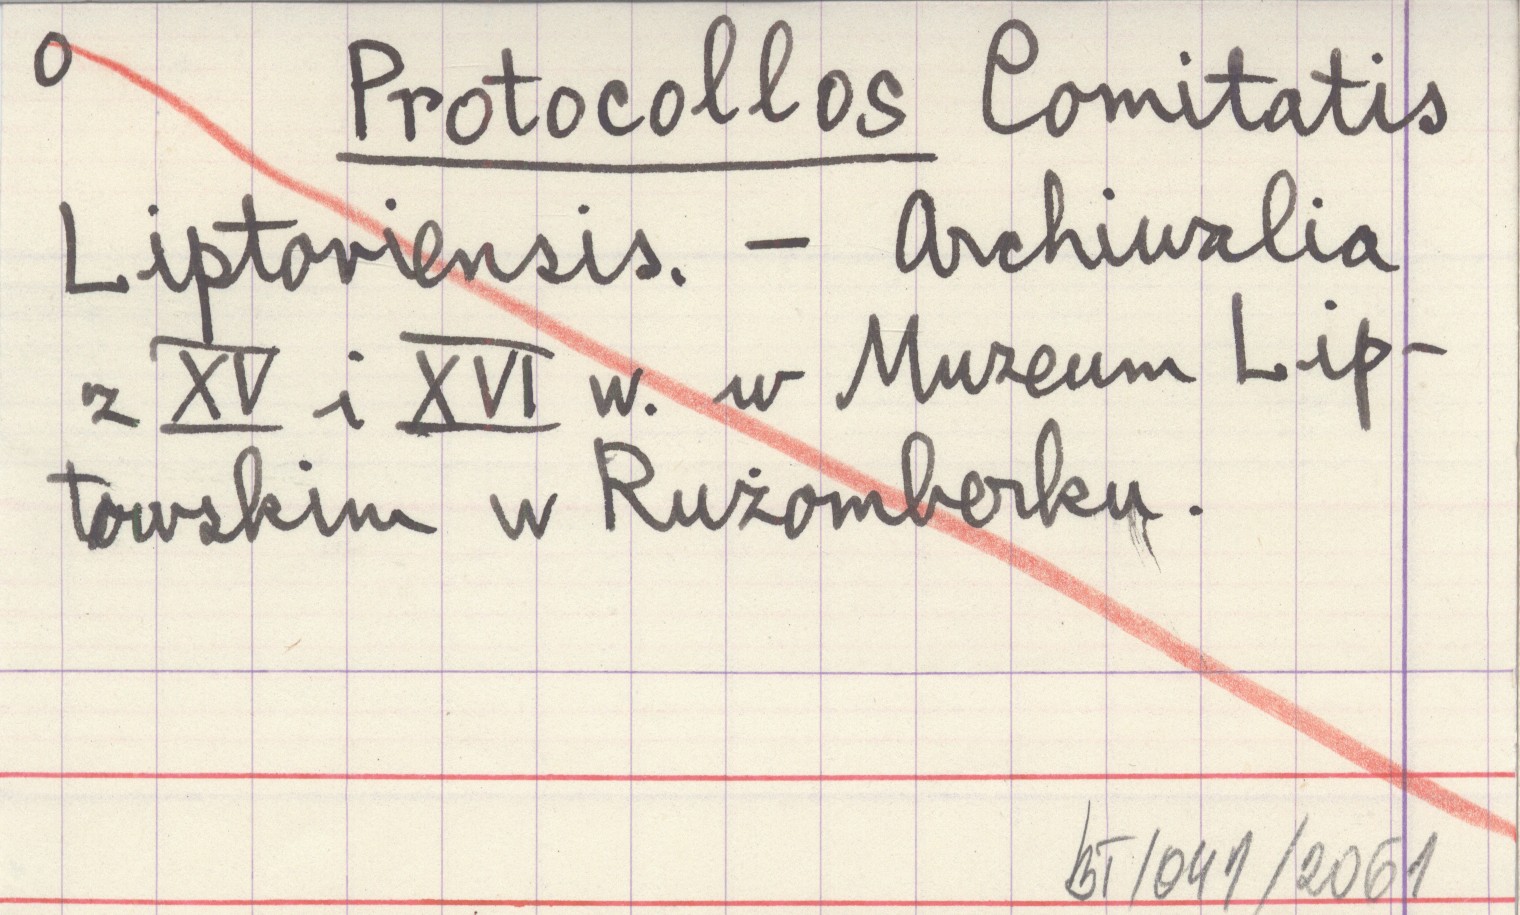 O Protocollos Comitatis
Liptoviensis. – Archiwalia
z XV i XVI w. w Muzeum Lip-
towskim w Rużomberku.
BT/041/2061